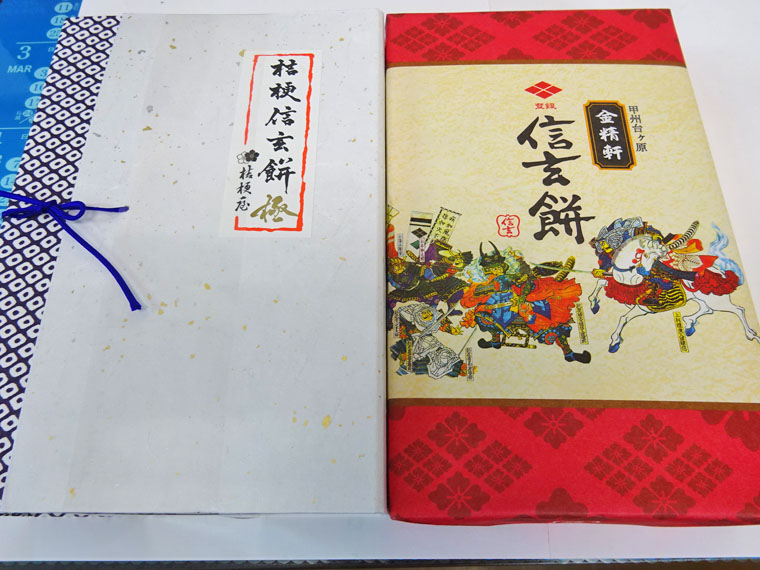 3
MAR
11
桔梗信玄餅
極
桔梗屋
登録
信玄餅
甲州台ヶ原
金精軒
信玄